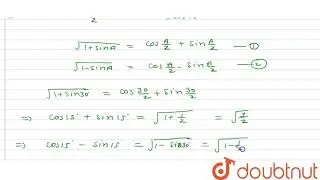 2
√1+sinA = cos A/2 + sin A/2 — ①
√1-sinA = cos A/2 - sin A/2 — ②
√1+sin30 = cos 30/2 + sin 30/2
⇒ cos15° + sin15 = √1+1/2 = √3/2
⇒ cos15° - sin15 = √1-sin30° = √1-1/2
doubtnut